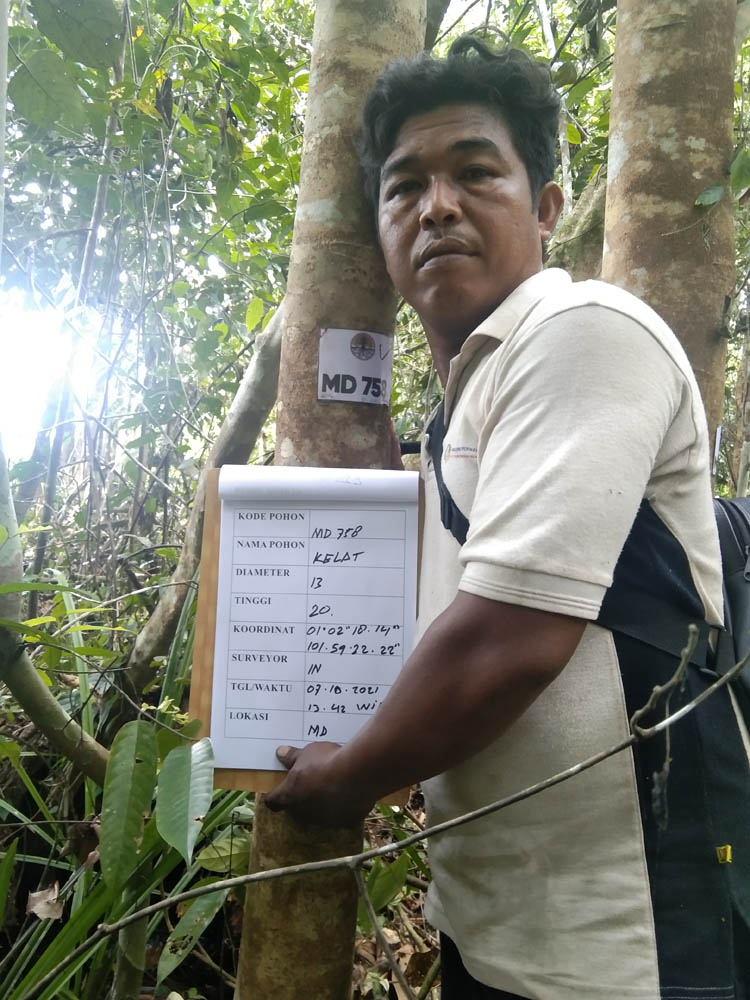 MD 758
KODE POHON MD 758
NAMA POHON KELAT
DIAMETER 13
TINGGI 20.
KOORDINAT 01°02" 18. 14"
101. 59. 22. 22"
SURVEYOR IN
TGL/WAKTU 07.10.2021
13.42
LOKASI MD